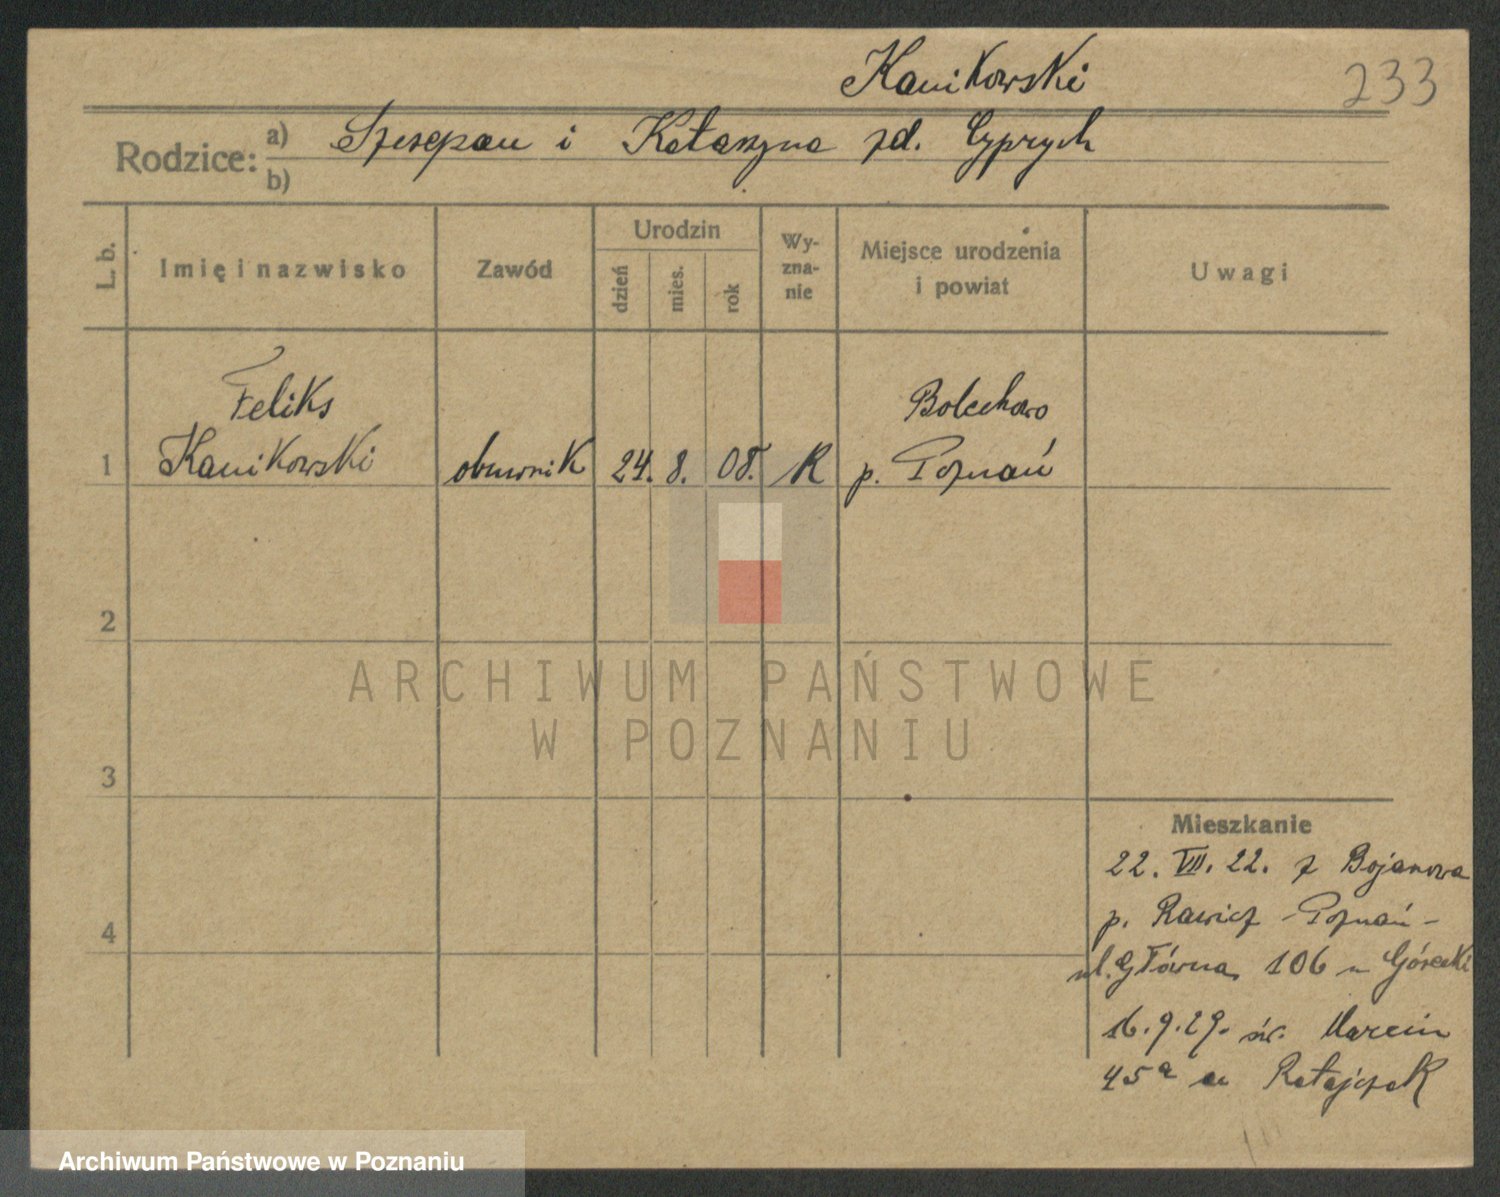 Kanikowski
233
Rodzice: a) Szczepan i Katarzyna zd. Cyprych
b)
L. b.
Imię i nazwisko
Zawód
Urodzin
dzień
mies.
rok
Wy-
zna-
nie
Miejsce urodzenia
i powiat
Uwagi
Feliks
Bolechowo
1 Kanikowski obuwnik 24. 8. 08. R p. Poznań
2
ARCHIWUM PAŃSTWOWE
W POZNANIU
3
Mieszkanie
22. VII. 22. z Bojanowa
p. Rawicz - Poznań -
4
ul. Główna 106 u Górecki
16.9.29. św. Marcin
45a u Ratajczak
Archiwum Państwowe w Poznaniu